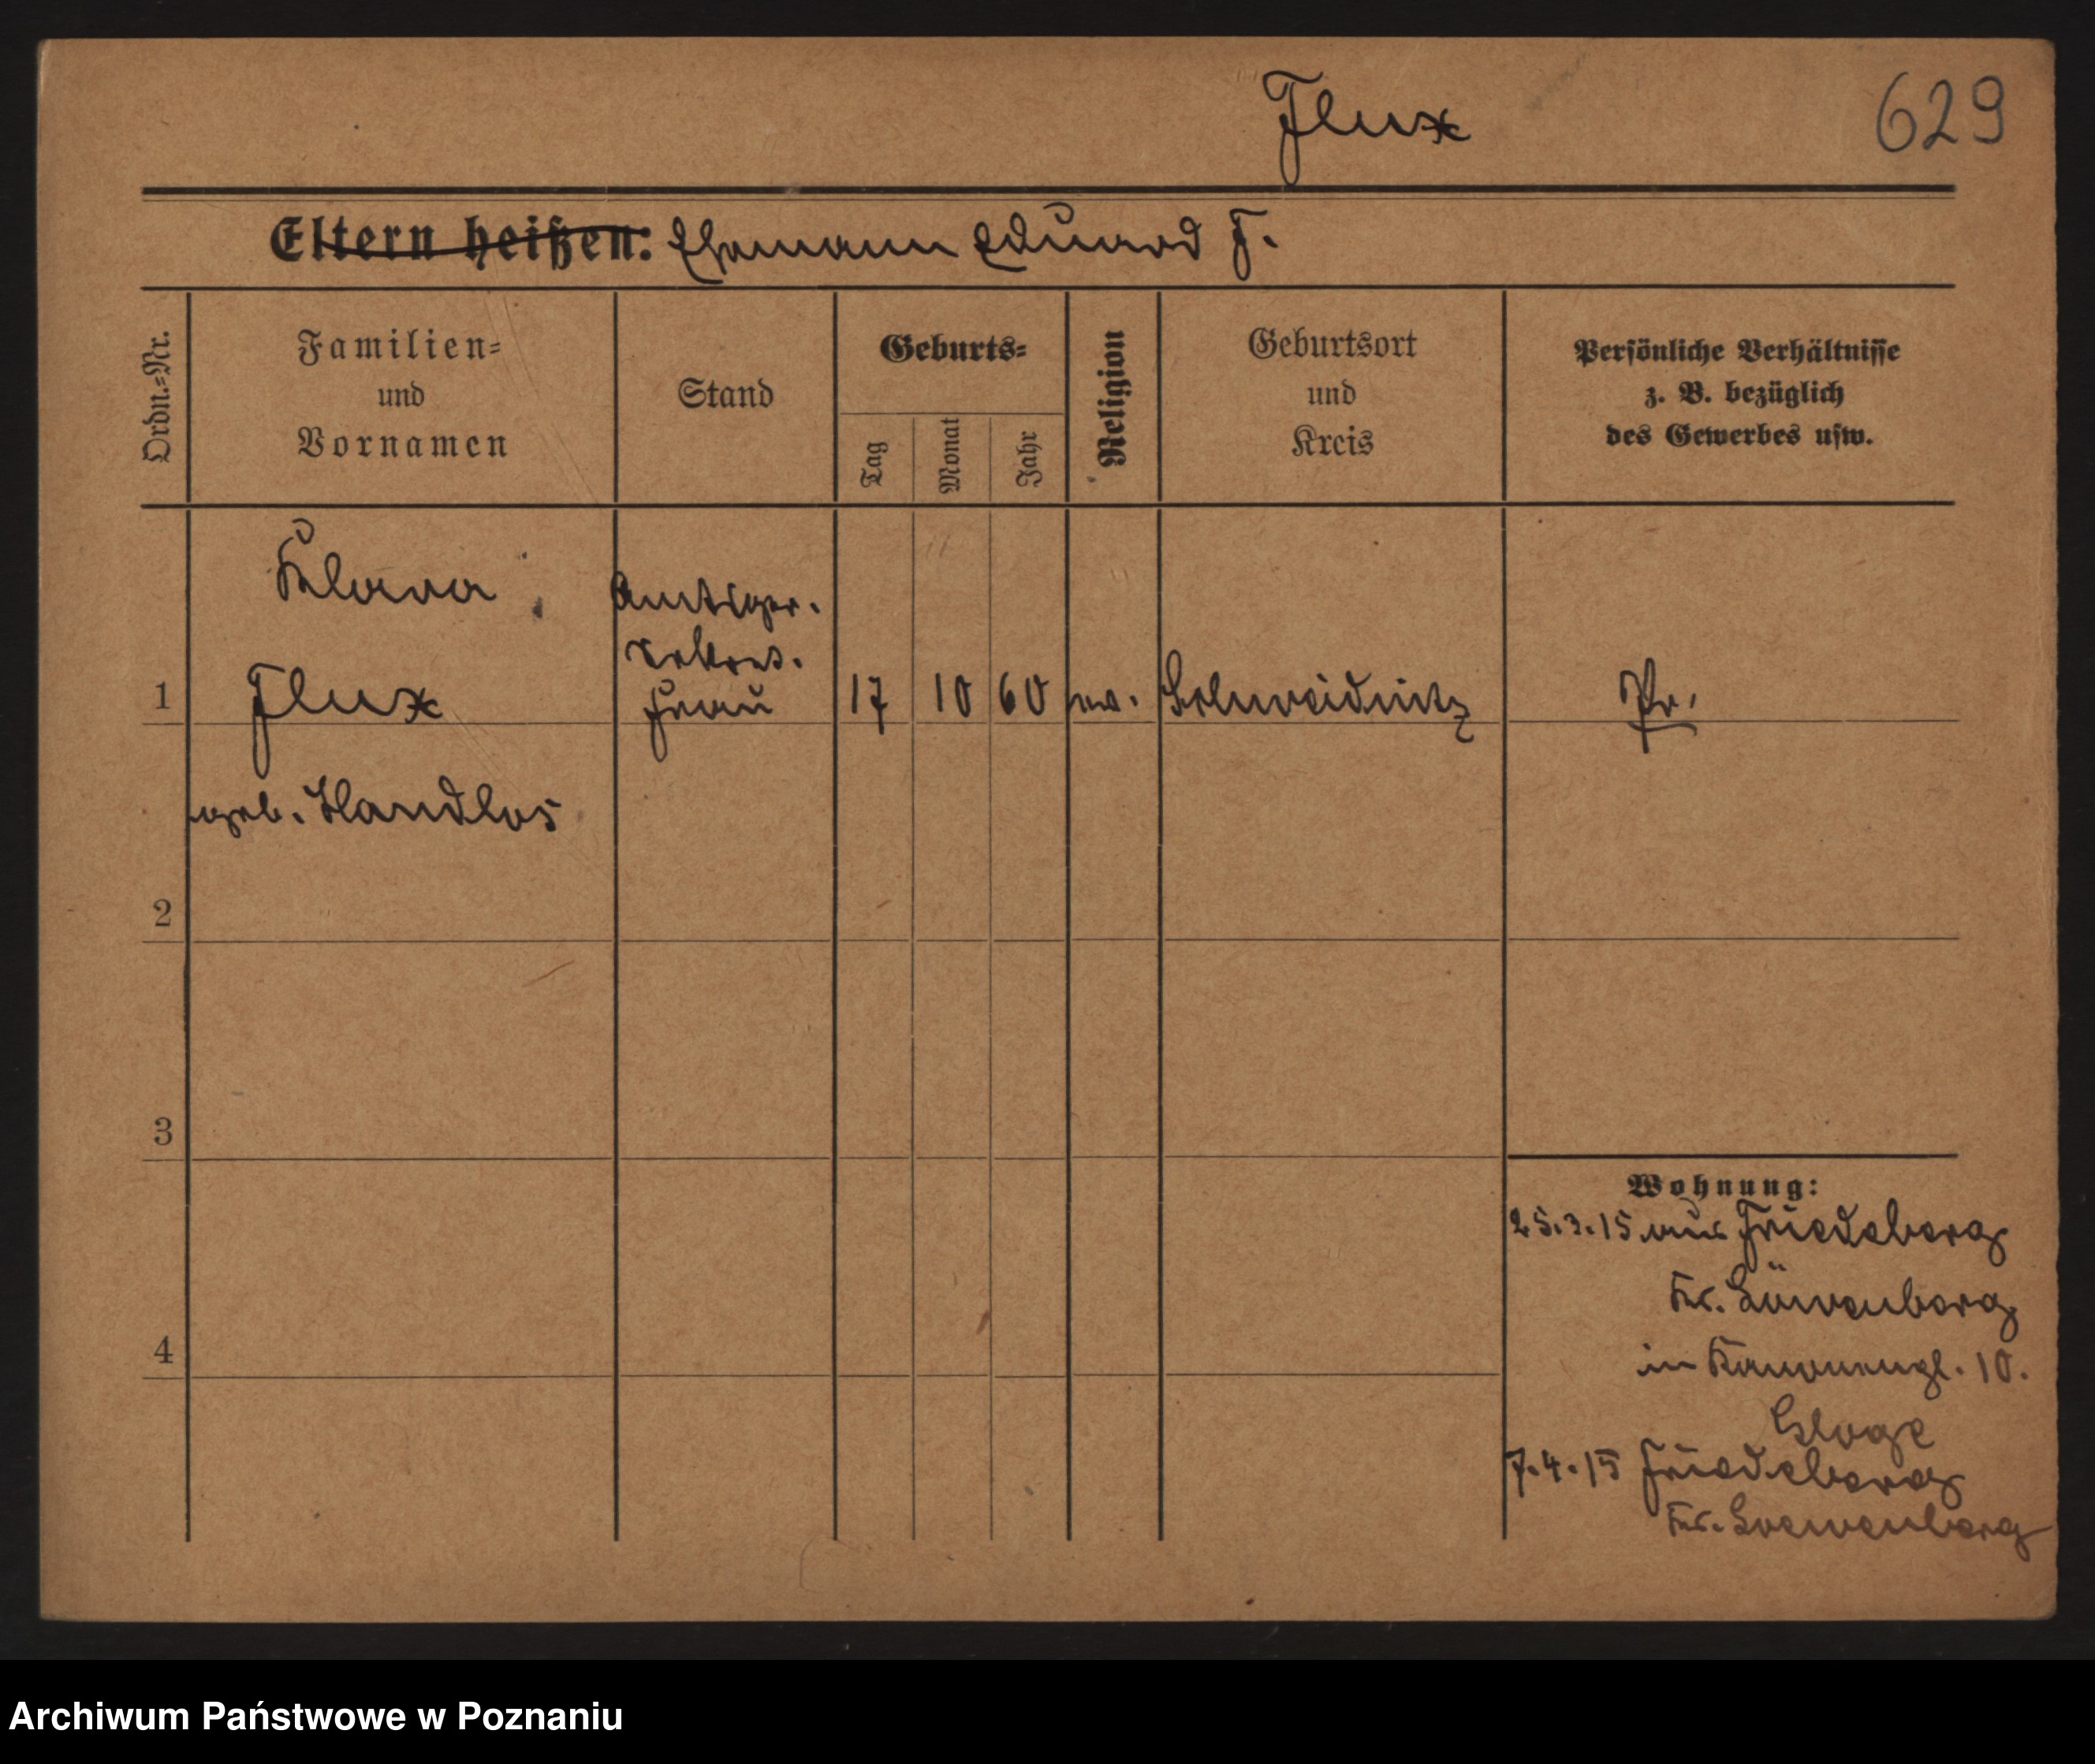 Flux
629
Eltern heißen: Ehemann Eduard F.
Ordn.-Nr.
Familien-
und
Vornamen
Stand
Geburts-
Tag
Monat
Jahr
Religion
Geburtsort
und
Kreis
Persönliche Verhältnisse
z. B. bezüglich
des Gewerbes usw.
Klara
Amtsger.
1
Flux
Frau
17
10
60
ev.
Schweidnitz
Pr.
geb. Handlos
2
3
Wohnung:
25.3.15 aus Friedeberg
Kr. Löwenberg
4
in Kanonengl. 10.
Kloge
7.4.15 Friedeberg
Kr. Loewenberg
Archiwum Państwowe w Poznaniu